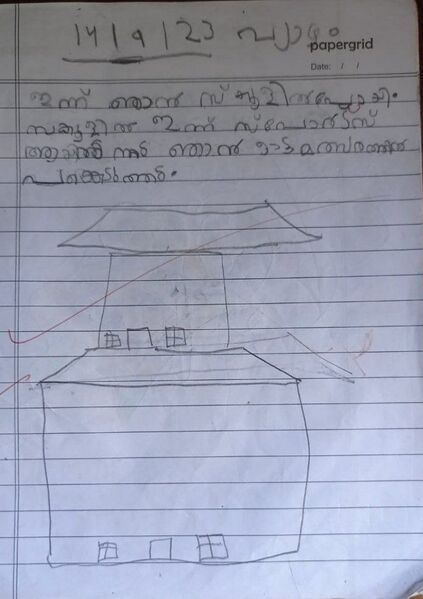 14/9/23 വ്യാഴം
papergrid
Date: / /
ഇന്ന് ഞാൻ സ്കൂളിൽപോയി.
സ്കൂളിൽ ഇന്ന് സ്പോർട്സ്
ആയിരുന്നു ഞാൻ ഓട്ടമത്സരത്തിൽ
പങ്കെടുത്തു.